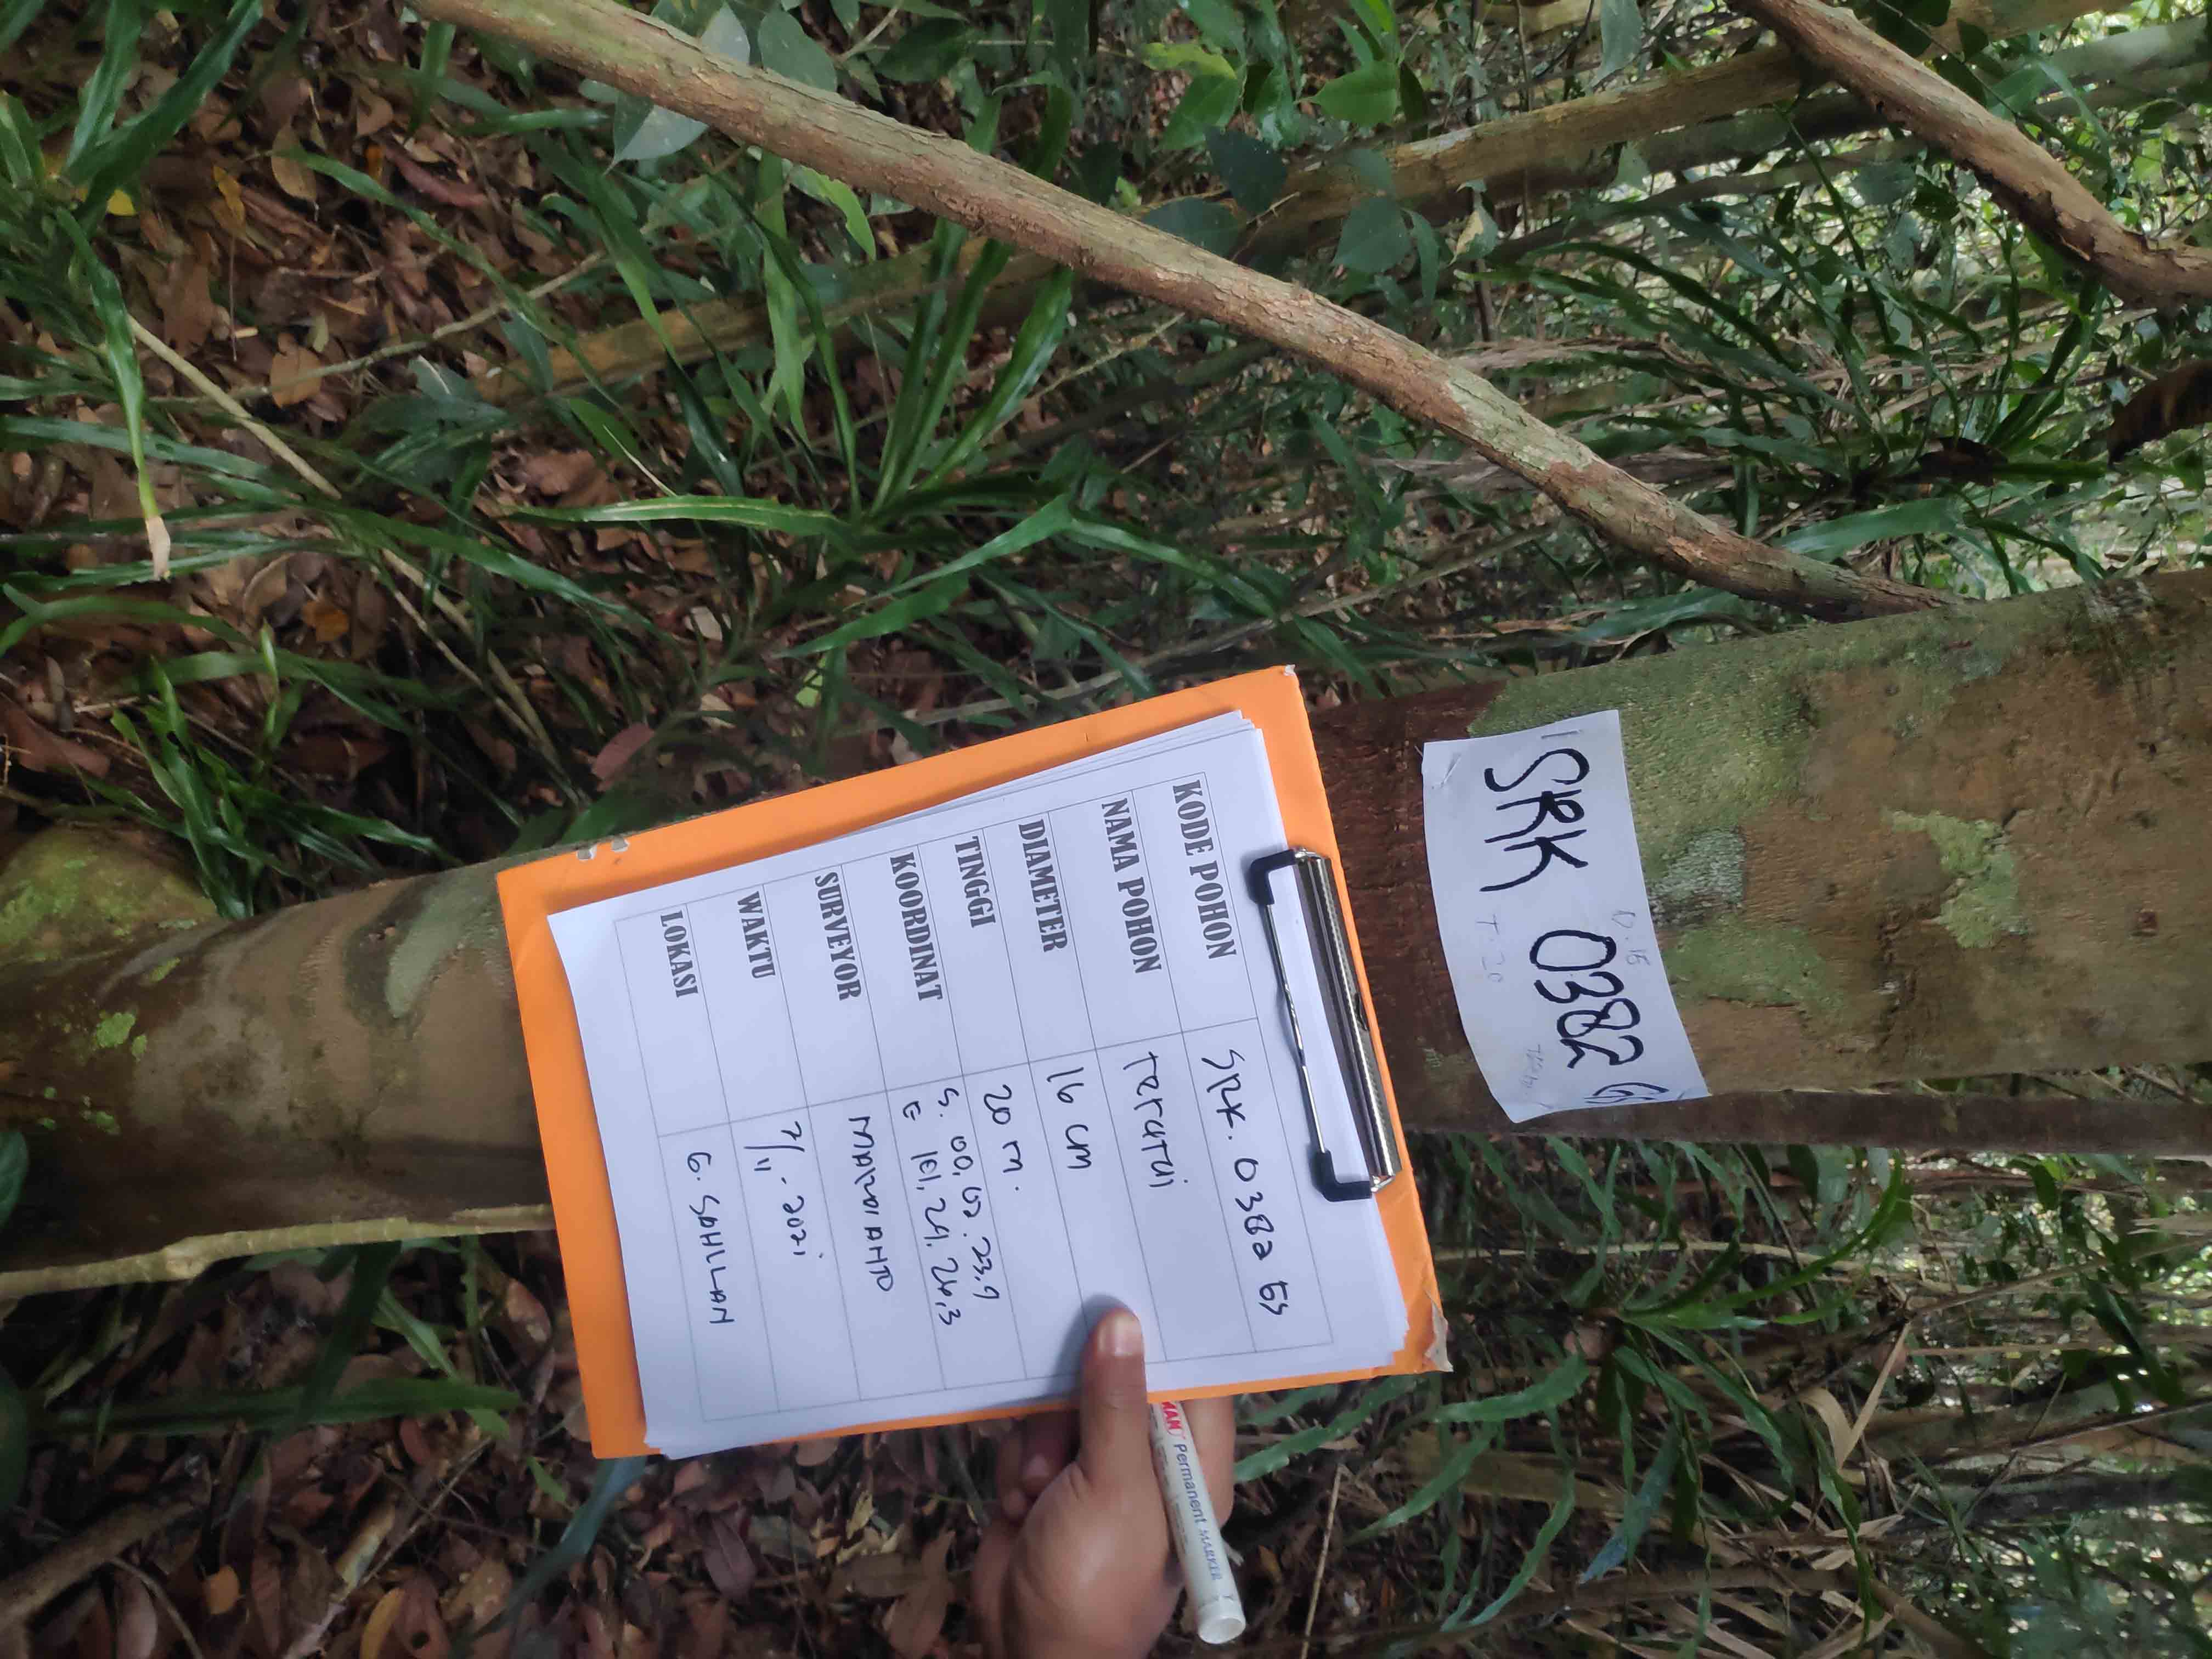 SRK 0382
T. 20
KODE POHON SRK. 0382 GS
NAMA POHON
DIAMETER 16 cm
TINGGI 20 m.
KOORDINAT S. 00, 
E 101, 24, 24,3
SURVEYOR
WAKTU 7/11 - 2021
LOKASI G. SAHILAN
Permanent MARKER